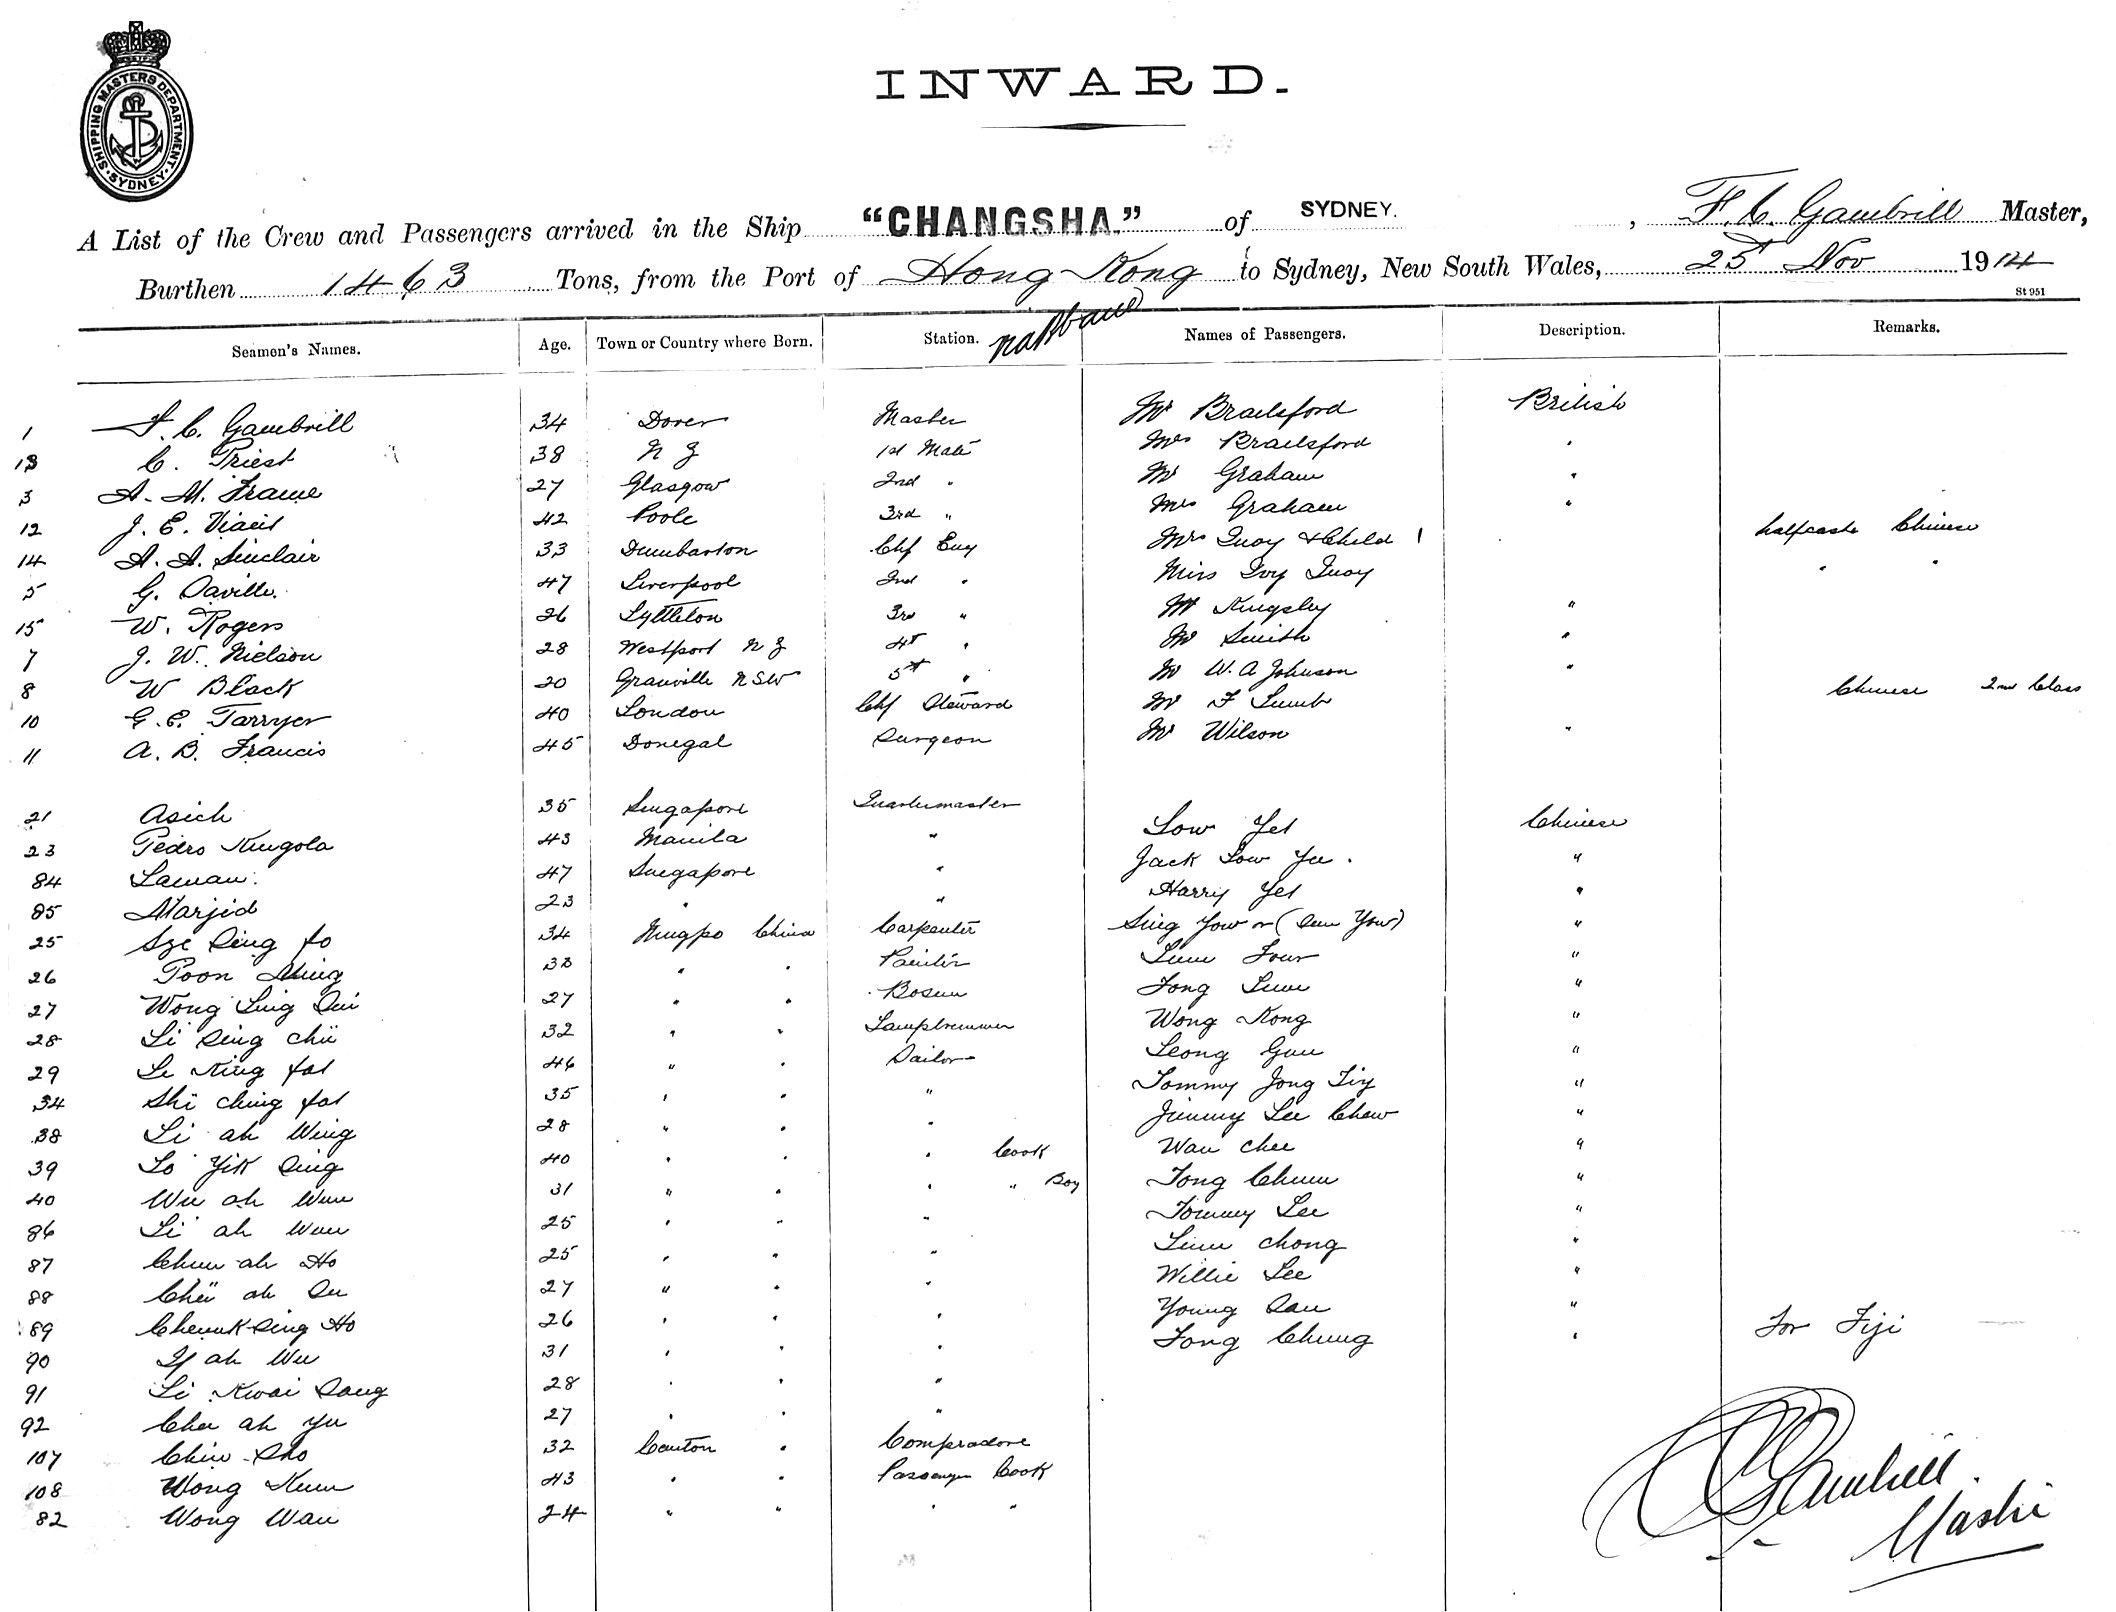 SHIPPING MASTERS DEPARTMENT · SYDNEY ·
INWARD.
A List of the Crew and Passengers arrived in the Ship "CHANGSHA" of SYDNEY. , F. C. Gambrill Master,
Burthen 1463 Tons, from the Port of Hong Kong to Sydney, New South Wales, 25 Nov 1914
St 951
Seamen's Names. Age. Town or Country where Born. Station. Names of Passengers. Description. Remarks.
1 F. C. Gambrill 34 Dover Master Mr Brailsford British
13 C. Priest 38 N Z 1st Mate Mrs Brailsford "
3 A. M. Frame 27 Glasgow 2nd " Mr Graham "
12 J. E. 42 Poole 3rd " Mrs Graham "
14 A. A. Sinclair 33 Dumbarton Chf Eng Mrs Quoy & Child 1 halfcaste Chinese
5 G. Saville. 47 Liverpool 2nd " Miss Ivy Quoy " "
15 W. Rogers 26 Lyttleton 3rd " Mr Kingsley "
7 J. W. Nielson 28 Westport N Z 4th " Mr Smith "
8 W Black 20 Granville NSW 5th " Mr W. A Johnson "
10 G. E. Tarryer 40 London Chf Steward Mr F Lumb Chinese 2nd Class
11 A. B. Francis 45 Donegal Surgeon Mr Wilson "
21 Asich 35 Singapore Quartermaster Low Yet Chinese
23 Pedro Kingola 43 Manila " Jack Low Yee. "
84 Laman. 47 Singapore " Harry Yet "
85 Marjid 23 " " Sing Yow or (Sun Yow) "
25 Sze Sing fo 34 Ningpo China Carpenter Lum Four "
26 Poon Ming 33 " " Painter Fong Lum "
27 Wong Ling Sui 27 " " Bosun Wong Kong "
28 Li Sing Chü 32 " " Lamptrimmer Leong Gun "
29 Le King fat 46 " " Sailor Tommy Jong Tiy "
34 Shi Ching fat 35 " " " Jimmy Lee Chew "
38 Li ah Wing 28 " " " Wan Chee "
39 Lo Yik Sing 40 " " " Cook Tong Chum "
40 Wu ah Wun 31 " " " " Boy Tommy Lee "
86 Li ah Wun 25 " " " Lum Chong "
87 Chun ah Ho 25 " " " Willie Lee "
88 Chü ah Su 27 " " " Young San "
89 Cheuk Sing Ho 26 " " " Fong Chung " For Fiji
90 If ah Wu 31 " " "
91 Li Kwai Sang 28 " " "
92 Cha ah Yu 27 " " "
107 Chiu Sho 32 Canton " Compradore
108 Wong Kum 43 " " Passenger Cook
82 Wong Wan 24 " " " "
Gambrill.
Master